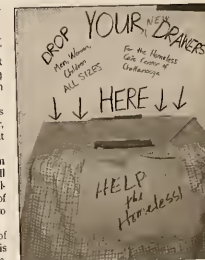 DROP YOUR NEW DRAWERS
Men, Women,
Children
ALL SIZES
For the Homeless
Care Center of
Chattanooga
HERE
HELP
the
Homeless!